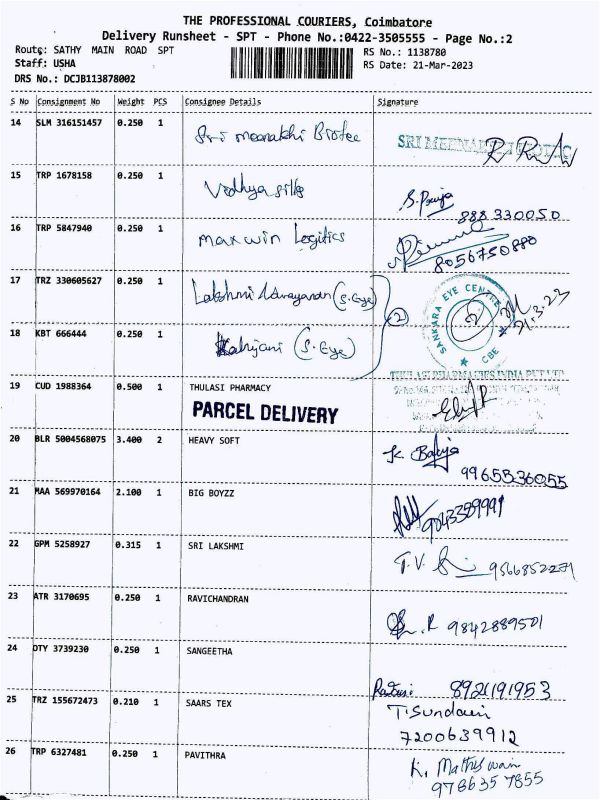 THE PROFESSIONAL COURIERS, Coimbatore
Delivery Runsheet - SPT - Phone No.:0422-3505555 - Page No.:2
Route: SATHY MAIN ROAD SPT
RS No.: 1138780
Staff: USHA
RS Date: 21-Mar-2023
DRS No.: DCJB113878002
S No Consignment No Weight PCS Consignee Details Signature
14 SLM 316151457 0.250 1 Sri meenakshi Biotec
15 TRP 1678158 0.250 1 Vidhya silks
888 330050
16 TRP 5847940 0.250 1 maxwin Logitics
8056750880
17 TRZ 330605627 0.250 1 Lakshmi Narayanan (S.Eye)
2
SANKARA EYE CENTRE
CBE
21.3.23
18 KBT 666444 0.250 1 (S.Eye)
THULASI PHARMACIES INDIA PVT LTD
19 CUD 1988364 0.500 1 THULASI PHARMACY
PARCEL DELIVERY
20 BLR 5004568075 3.400 2 HEAVY SOFT
9965536055
21 MAA 569970164 2.100 1 BIG BOYZZ
9043359991
22 GPM 5258927 0.315 1 SRI LAKSHMI T.V.
9566852271
23 ATR 3170695 0.250 1 RAVICHANDRAN
9842889501
24 DTY 3739230 0.250 1 SANGEETHA
8921191953
25 TRZ 155672473 0.210 1 SAARS TEX T.Sundari
7200639912
26 TRP 6327481 0.250 1 PAVITHRA K. Matheswain
9786357855